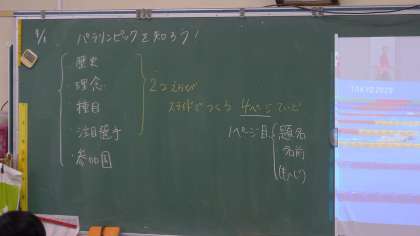 9/1 パラリンピックを知ろう!
・歴史
・理念
・種目
・注目選手
・参加国
2つえらび
スライドでつくろう 4ページていど
1ページ目
・題名
・名前
TOKYO2020